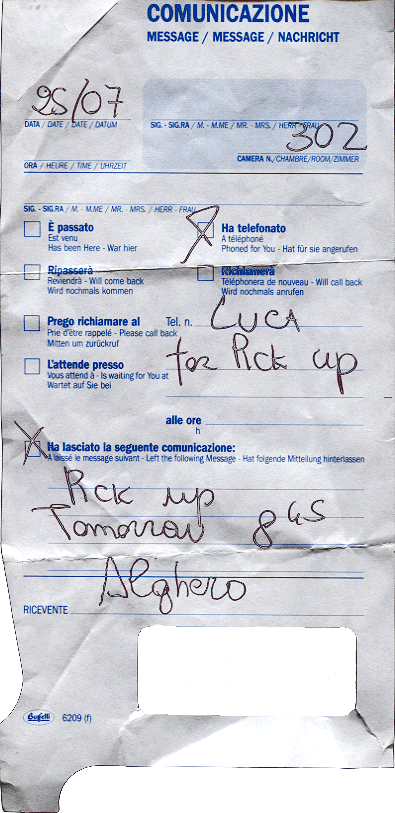 COMUNICAZIONE
MESSAGE / MESSAGE / NACHRICHT
25/07
DATA / DATE / DATE / DATUM
SIG. - SIG.RA / M. - M.ME / MR. - MRS. / HERR - FRAU
302
ORA / HEURE / TIME / UHRZEIT
CAMERA N./CHAMBRE/ROOM/ZIMMER
SIG. - SIG.RA / M. - M.ME / MR. - MRS. / HERR - FRAU
È passato
Est venu
Has been Here - War hier
Ha telefonato
A téléphoné
Phoned for You - Hat für sie angerufen
Ripasserà
Reviendrà - Will come back
Wird nochmals kommen
Richiamerà
Téléphonera de nouveau - Will call back
Wird nochmals anrufen
Prego richiamare al
Prie d'ètre rappelé - Please call back
Mitten um zurückruf
Tel. n.
LUCA
for Pick up
L'attende presso
Vous attend à - Is waiting for You at
Wartet auf Sie bei
alle ore
h
Ha lasciato la seguente comunicazione:
A laissé le message suivant - Left the following Message - Hat folgende Mitteilung hinterlassen
Pick up
Tomorrow 8 45
Alghero
RICEVENTE
Buffetti 6209 (f)